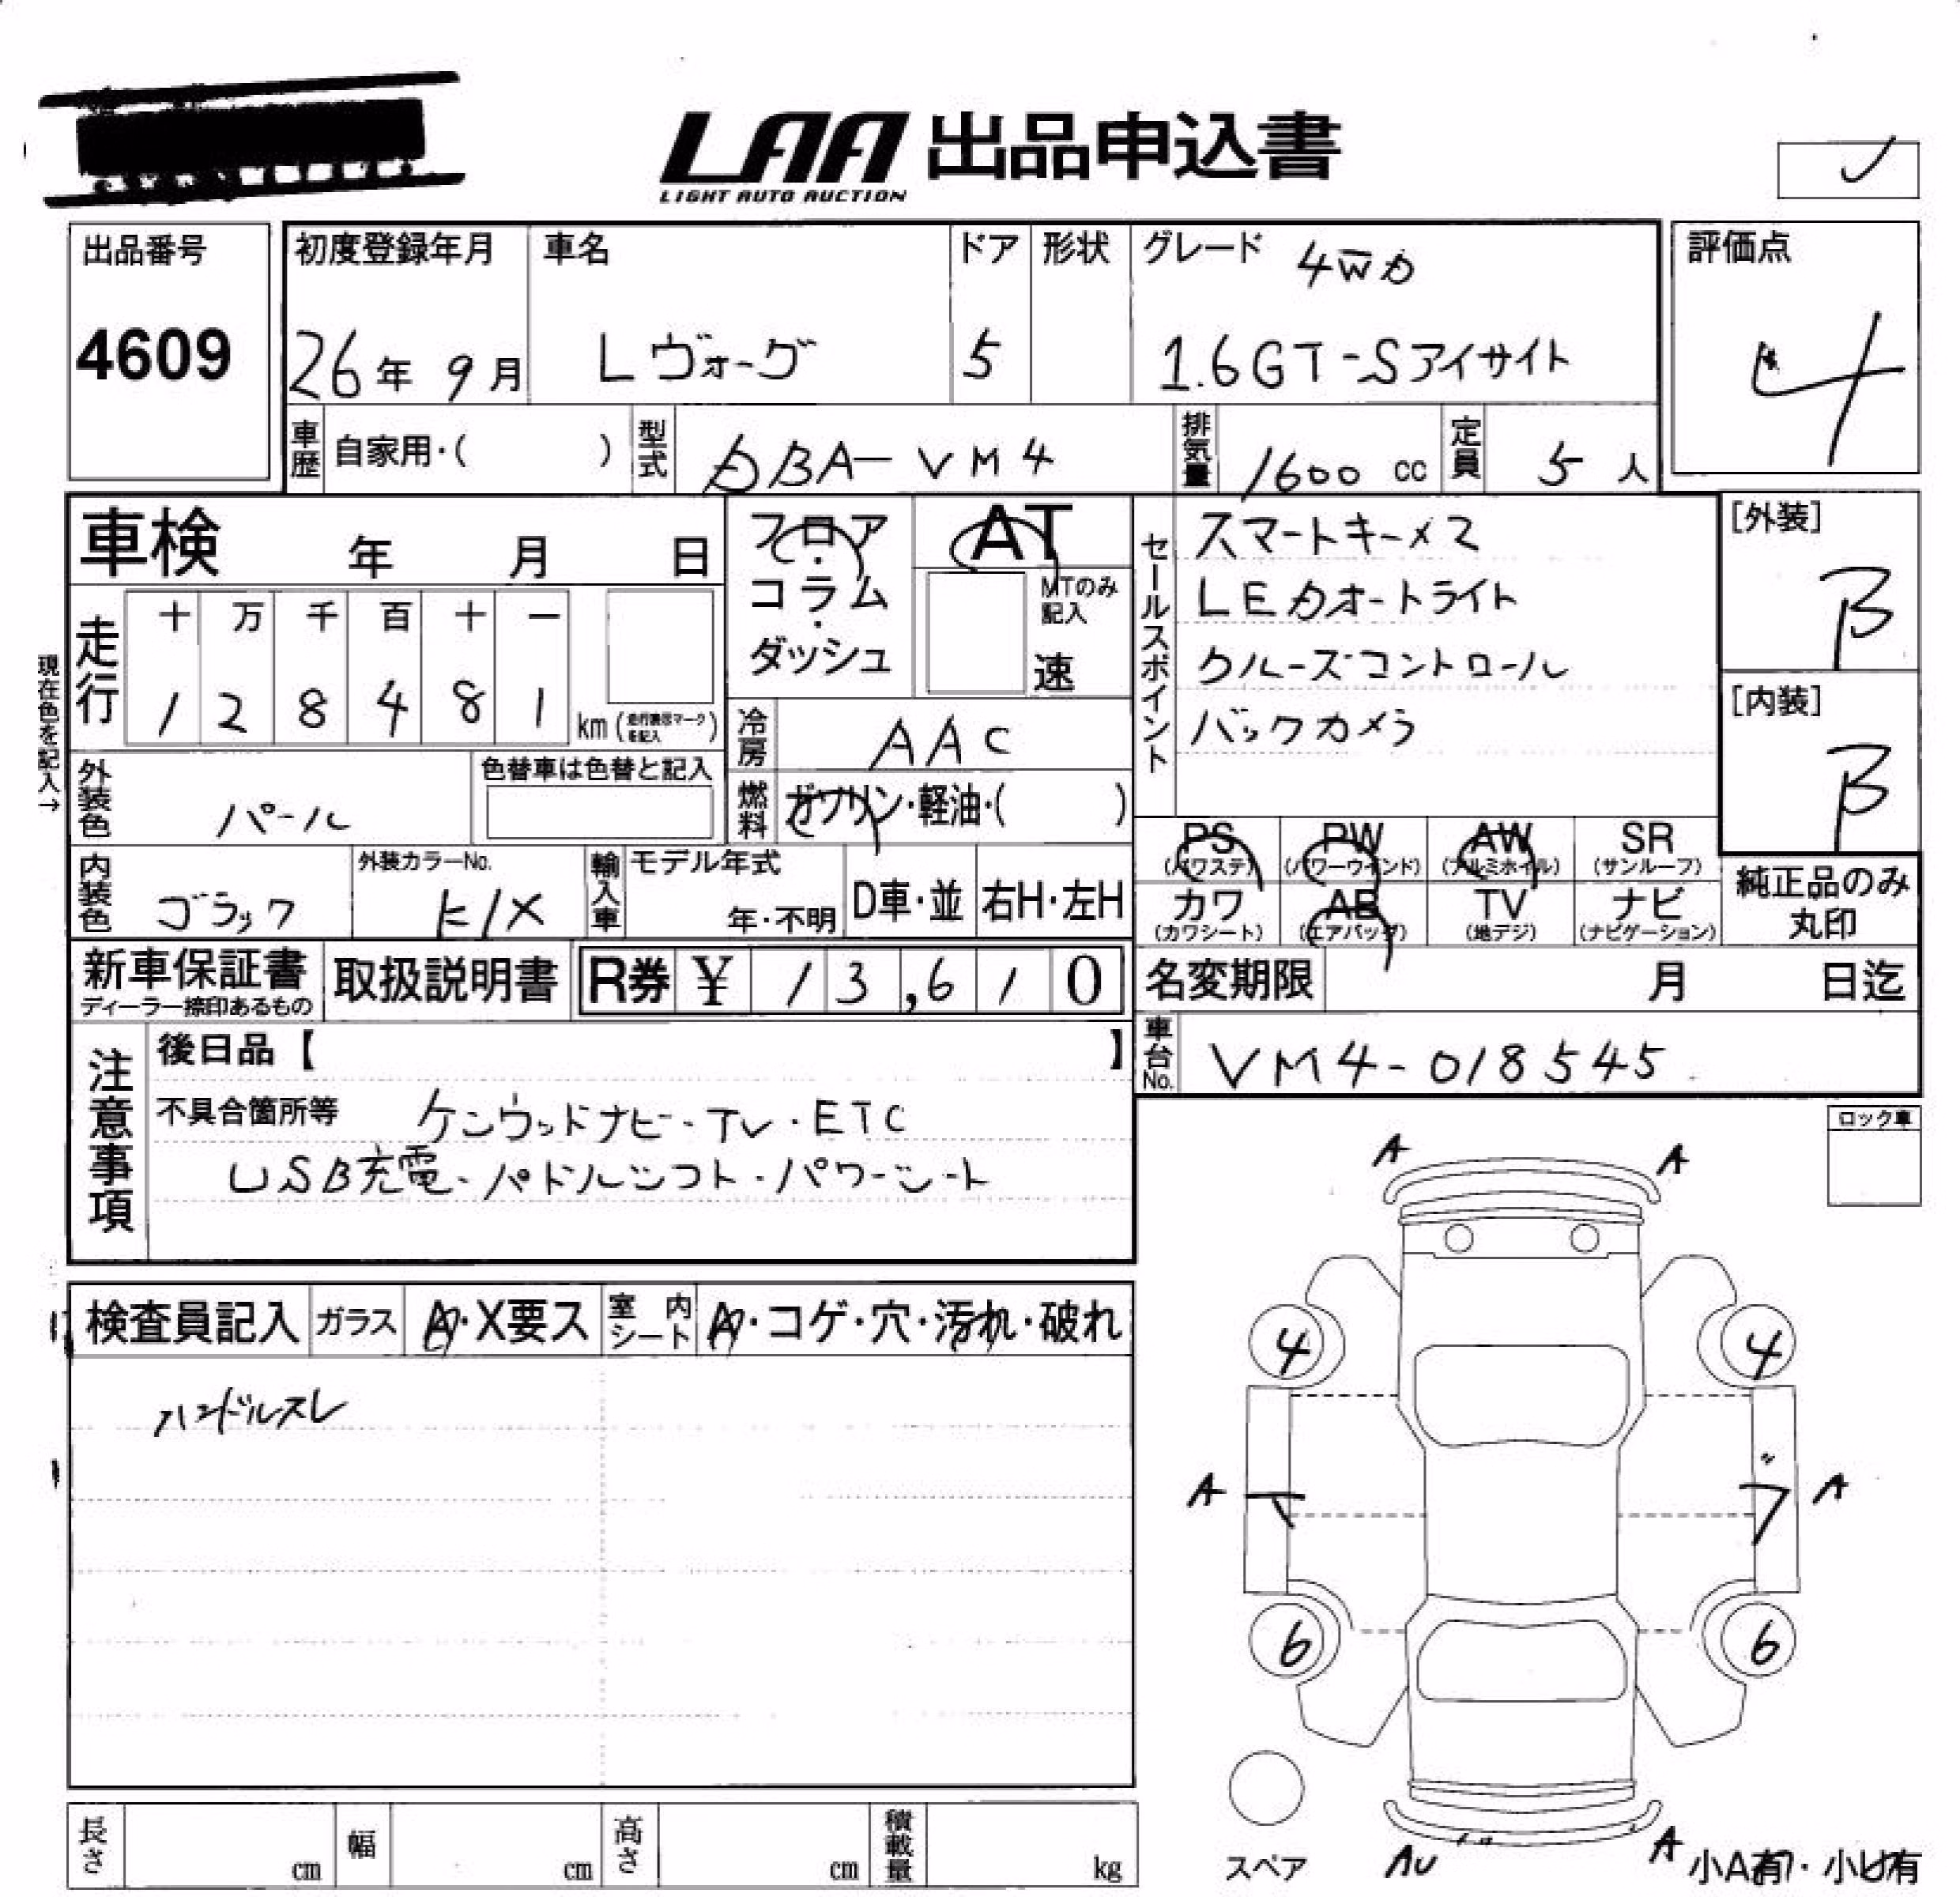 LAA 出品申込書
LIGHT AUTO AUCTION
出品番号
4609
初度登録年月
26年 9月
車名
Lヴォーグ
ドア
5
形状
グレード 4WD
1.6GT-Sアイサイト
評価点
4
車歴 自家用・( )
型式 DBA-VM4
排気量 1600 cc
定員 5 人
車検 年 月 日
フロア・コラム・ダッシュ
AT
MTのみ記入
速
セールスポイント
スマートキー×2
LEDオートライト
クルーズコントロール
バックカメラ
[外装]
B
[内装]
B
現在色を記入→
走行
十 万 千 百 十 一
1 2 8 4 8 1 km (走行表示マークを記入)
冷房 AAC
外装色 パール
色替車は色替と記入
燃料 ガソリン・軽油・( )
内装色 ブラック
外装カラーNo.
K1X
輸入車 モデル年式
年・不明
D車・並
右H・左H
PS (パワステ)
PW (パワーウインド)
AW (アルミホイル)
SR (サンルーフ)
カワ (カワシート)
AB (エアバッグ)
TV (地デジ)
ナビ (ナビゲーション)
純正品のみ丸印
新車保証書
ディーラー捺印あるもの
取扱説明書
R券 ¥ 13,610
名変期限 月 日迄
車台No. VM4-018545
注意事項
後日品【 】
不具合箇所等 ケンウッドナビ・TV・ETC
USB充電・パドルシフト・パワーシート
ロック車
検査員記入 ガラス A・X要ス 室内シート A・コゲ・穴・汚れ・破れ
ハンドルスレ
A A
4 4
A A
6 6
スペア
AU A
小A有・小U有
長さ cm
幅 cm
高さ cm
積載量 kg